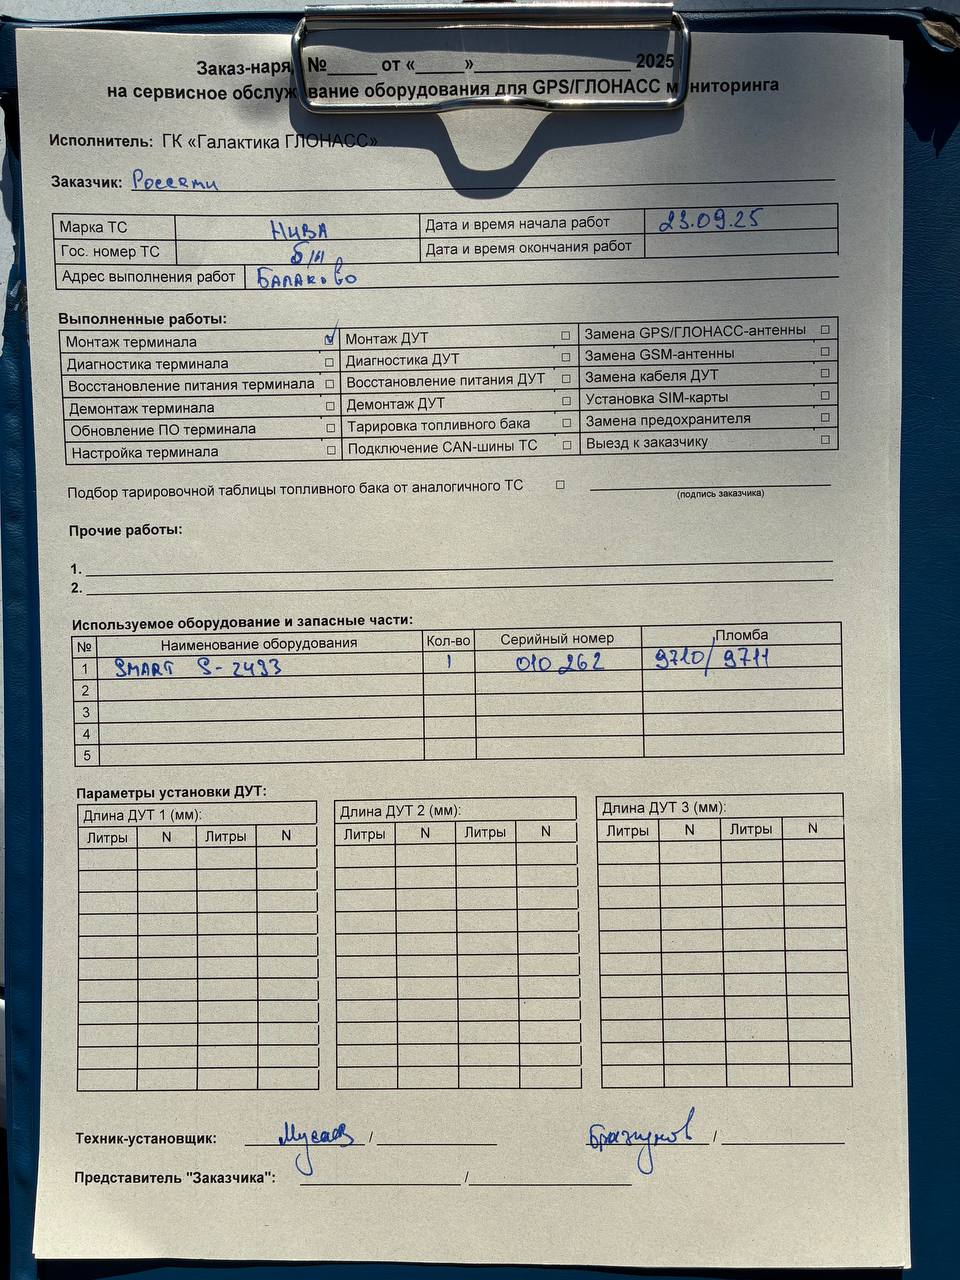 Заказ-наря №_____ от «_____»________________ 2025
на сервисное обслуживание оборудования для GPS/ГЛОНАСС мониторинга
Исполнитель: ГК «Галактика ГЛОНАСС»
Заказчик: Россети
Марка ТС НИВА Дата и время начала работ 23.09.25
Гос. номер ТС б/н Дата и время окончания работ
Адрес выполнения работ БАЛАКОВО
Выполненные работы:
Монтаж терминала ☑ Монтаж ДУТ ☐ Замена GPS/ГЛОНАСС-антенны ☐
Диагностика терминала ☐ Диагностика ДУТ ☐ Замена GSM-антенны ☐
Восстановление питания терминала ☐ Восстановление питания ДУТ ☐ Замена кабеля ДУТ ☐
Демонтаж терминала ☐ Демонтаж ДУТ ☐ Установка SIM-карты ☐
Обновление ПО терминала ☐ Тарировка топливного бака ☐ Замена предохранителя ☐
Настройка терминала ☐ Подключение CAN-шины ТС ☐ Выезд к заказчику ☐
Подбор тарировочной таблицы топливного бака от аналогичного ТС ☐
(подпись заказчика)
Прочие работы:
1.
2.
Используемое оборудование и запасные части:
№ Наименование оборудования Кол-во Серийный номер Пломба
1 SMART S-2433 1 010262 9710/9711
2
3
4
5
Параметры установки ДУТ:
Длина ДУТ 1 (мм): Длина ДУТ 2 (мм): Длина ДУТ 3 (мм):
Литры N Литры N Литры N Литры N Литры N Литры N
Техник-установщик: Мусаев / Бразунов /
Представитель "Заказчика": /